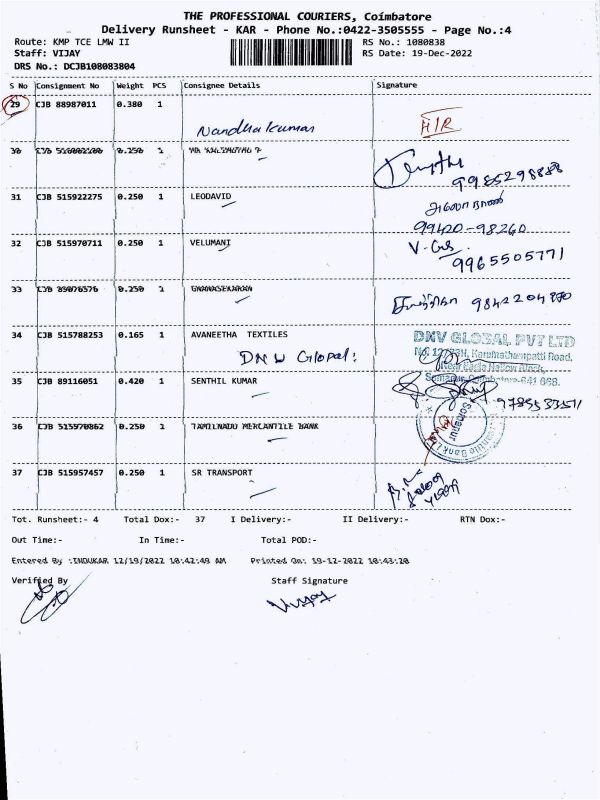 THE PROFESSIONAL COURIERS, Coimbatore
Delivery Runsheet - KAR - Phone No.:0422-3505555 - Page No.:4
Route: KMP TCE LMW II
RS No.: 1080838
Staff: VIJAY
RS Date: 19-Dec-2022
DRS No.: DCJB108083804
S No Consignment No Weight PCS Consignee Details Signature
29 CJB 88987011 0.380 1
Nandha kumar
30 CJB 0.250 1
31 CJB 515922275 0.250 1 LEODAVID
99420-98260
32 CJB 515970711 0.250 1 VELUMANI
9965505771
33 CJB 89076576 0.250 1 GNANASEKARAN
9842204870
34 CJB 515788253 0.165 1 AVANEETHA TEXTILES
DNV GLOBAL PVT LTD
DNV Glopal:
35 CJB 89116051 0.420 1 SENTHIL KUMAR
36 CJB 515970862 0.250 1 TAMILNADU MERCANTILE BANK
Somanur
37 CJB 515957457 0.250 1 SR TRANSPORT
Tot. Runsheet:- 4 Total Dox:- 37 I Delivery:- II Delivery:- RTN Dox:-
Out Time:- In Time:- Total POD:-
Entered By :INDUKAR 12/19/2022 10:42:49 AM Printed On: 19-12-2022 10:43:20
Verified By Staff Signature
Vijay